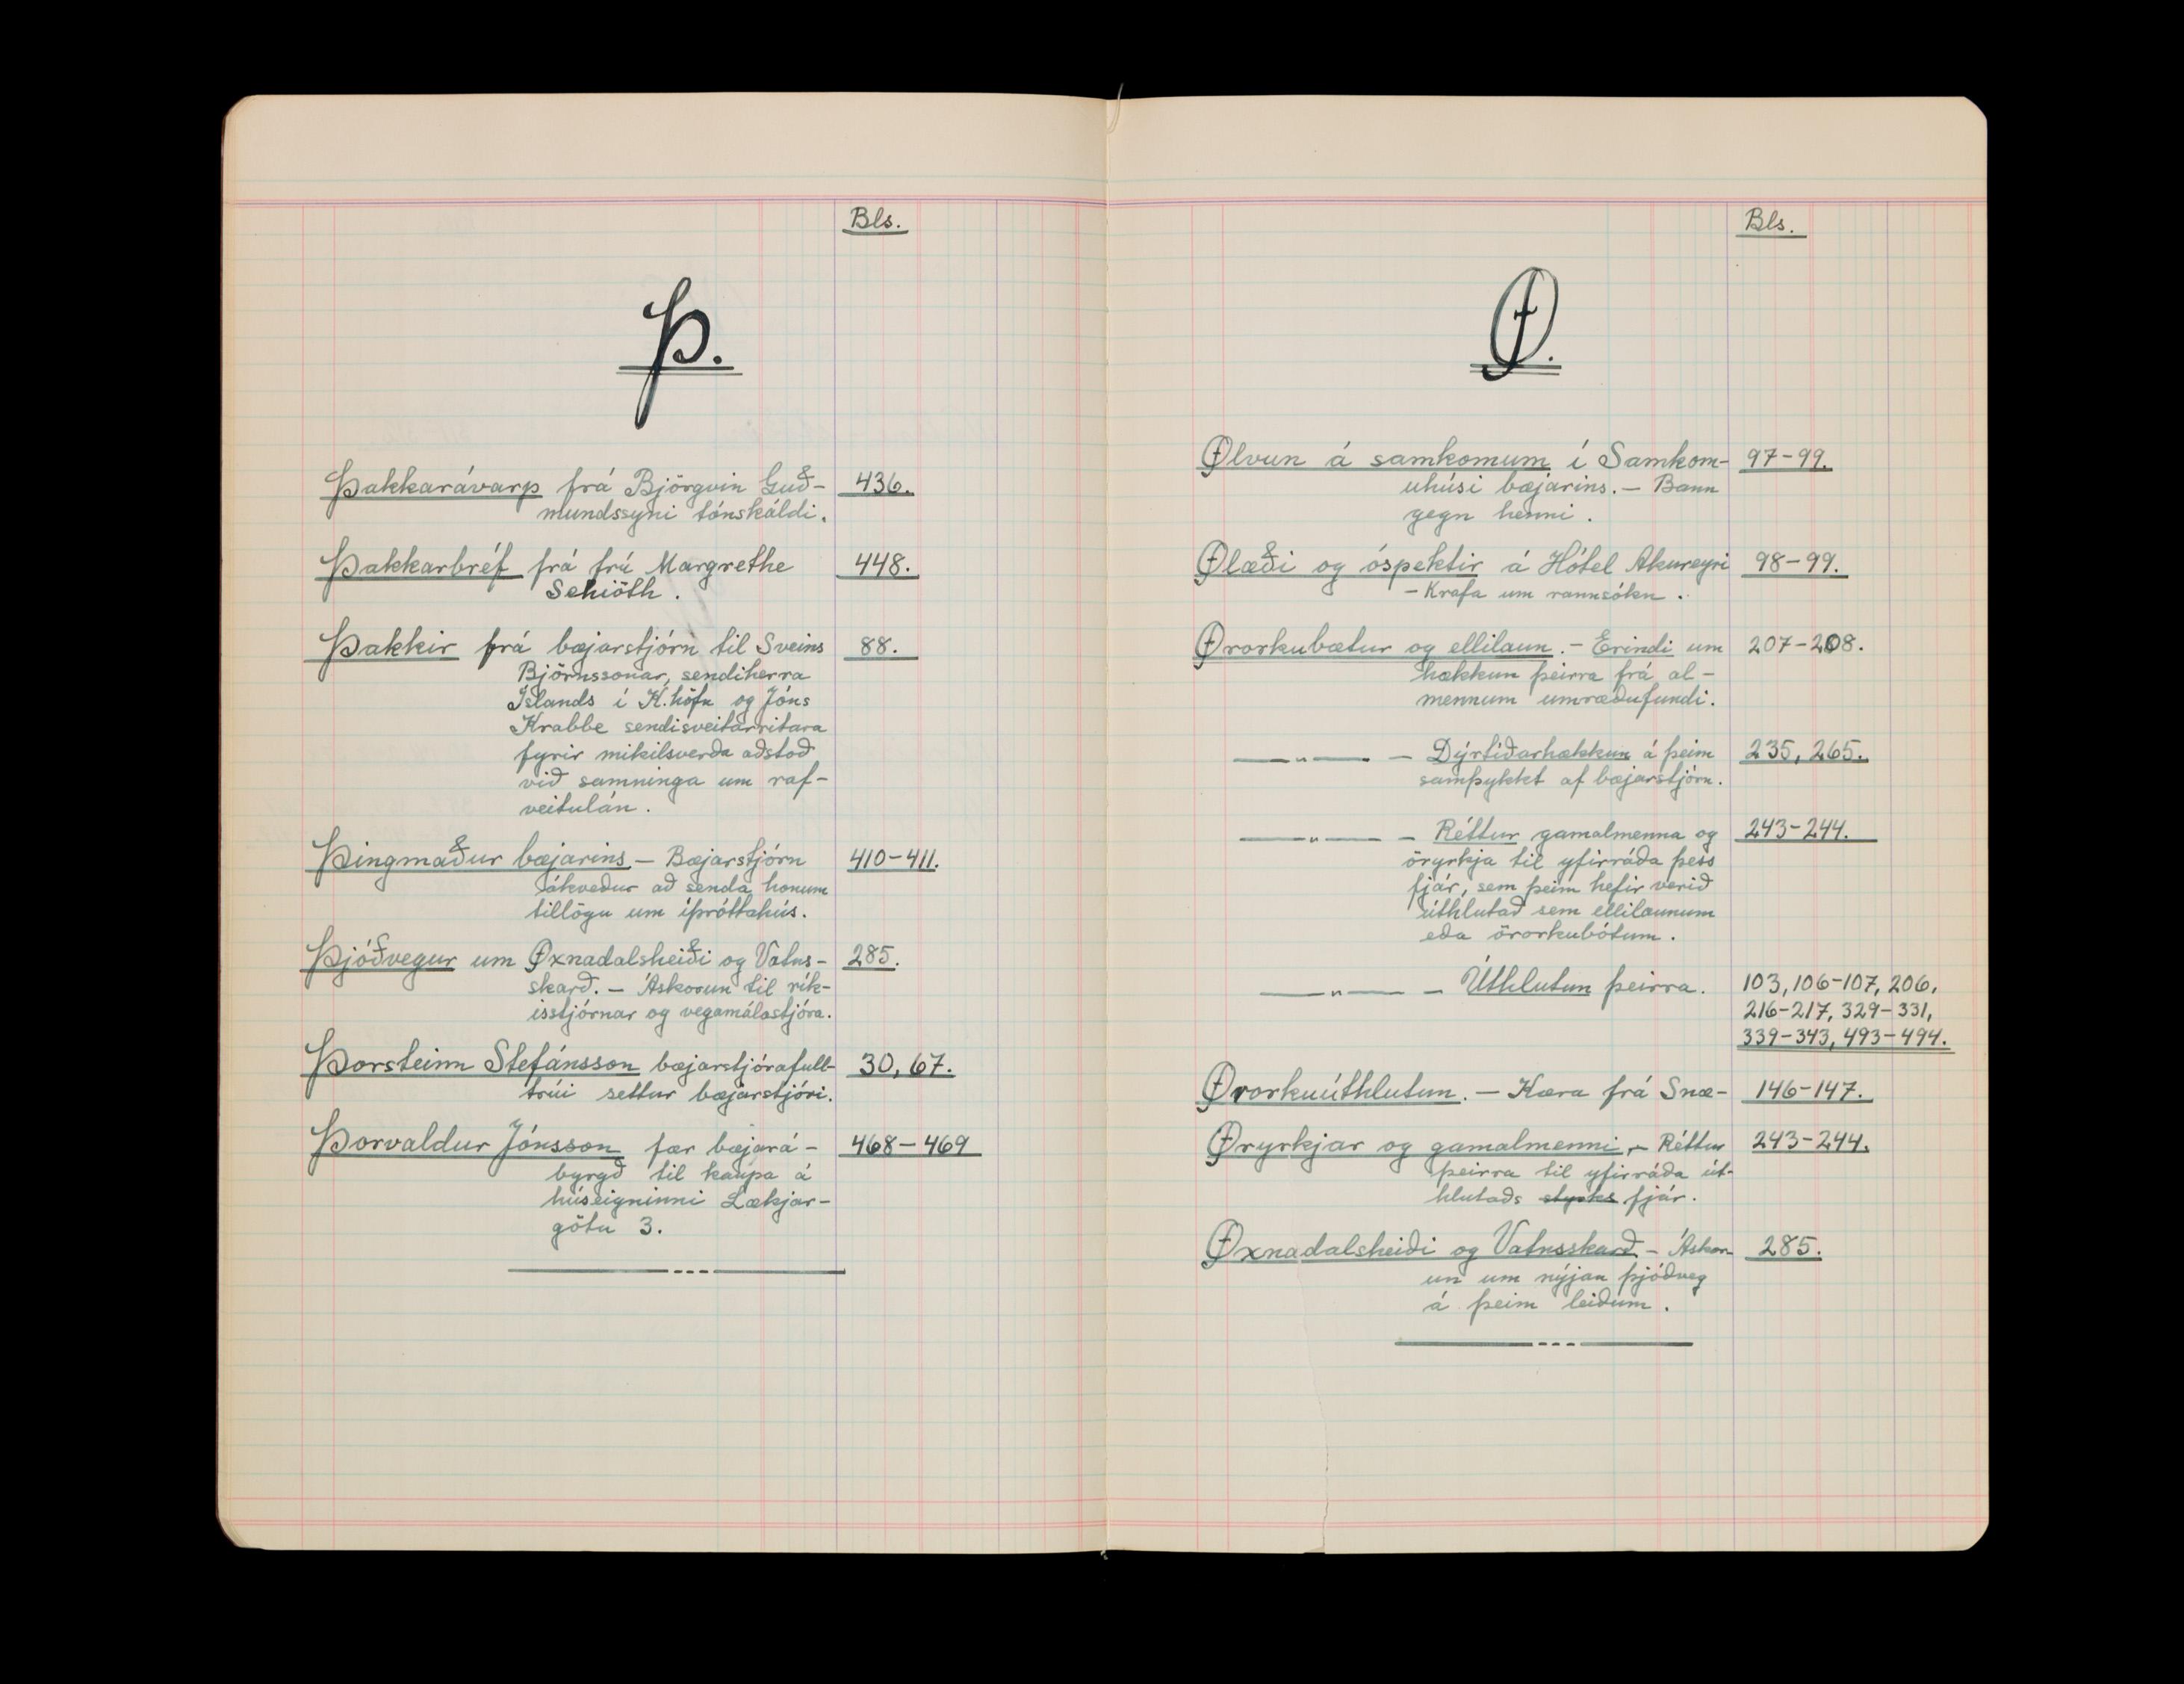 Bls.
Þ.
Þakkarávarp frá Björgvin Guð- 436.
mundssyni tónskáldi.
Þakkarbréf frá frú Margrethe 448.
Schiöth.
Þakkir frá bæjarstjórn til Sveins 88.
Björnssonar, sendiherra
Íslands í K.höfn og Jóns
Krabbe sendisveitarritara
fyrir mikilsverða aðstoð
við samninga um raf-
veitulán.
Þingmaður bæjarins - Bæjarstjórn 410-411.
ákveður að senda honum
tillögu um íþróttahús.
Þjóðvegur um Øxnadalsheiði og Vatns- 285.
skarð. - Áskorun til rík-
isstjórnar og vegamálastjóra.
Þorsteinn Stefánsson bæjarstjórafull- 30, 67.
trúi settur bæjarstjóri.
Þorvaldur Jónsson fær bæjará- 468-469
byrgð til kaupa á
húseigninni Lækjar-
götu 3.
Bls.
Ø.
Ølvun á samkomum í Samkom- 97-99.
uhúsi bæjarins. - Bann
gegn henni.
Ølæði og óspektir á Hótel Akureyri 98-99.
- Krafa um rannsókn.
Ørorkubætur og ellilaun. - Erindi um 207-208.
hækkun þeirra frá al-
mennum umræðufundi.
—"— - Dýrtíðarhækkun á þeim 235, 265.
samþykkt af bæjarstjórn.
—"— - Réttur gamalmenna og 243-244.
öryrkja til yfirráða þess
fjár, sem þeim hefir verið
úthlutað sem ellilaunum
eða örorkubótum.
—"— - Úthlutun þeirra. 103, 106-107, 206,
216-217, 329-331,
339-343, 493-494.
Ørorkuúthlutun. - Kæra frá Snæ- 146-147.
Øryrkjar og gamalmenni, - Réttur 243-244.
þeirra til yfirráða út-
hlutaðs styrks fjár.
Øxnadalsheiði og Vatnsskarð - Áskor- 285.
un um nýjan þjóðveg
á þeim leiðum.